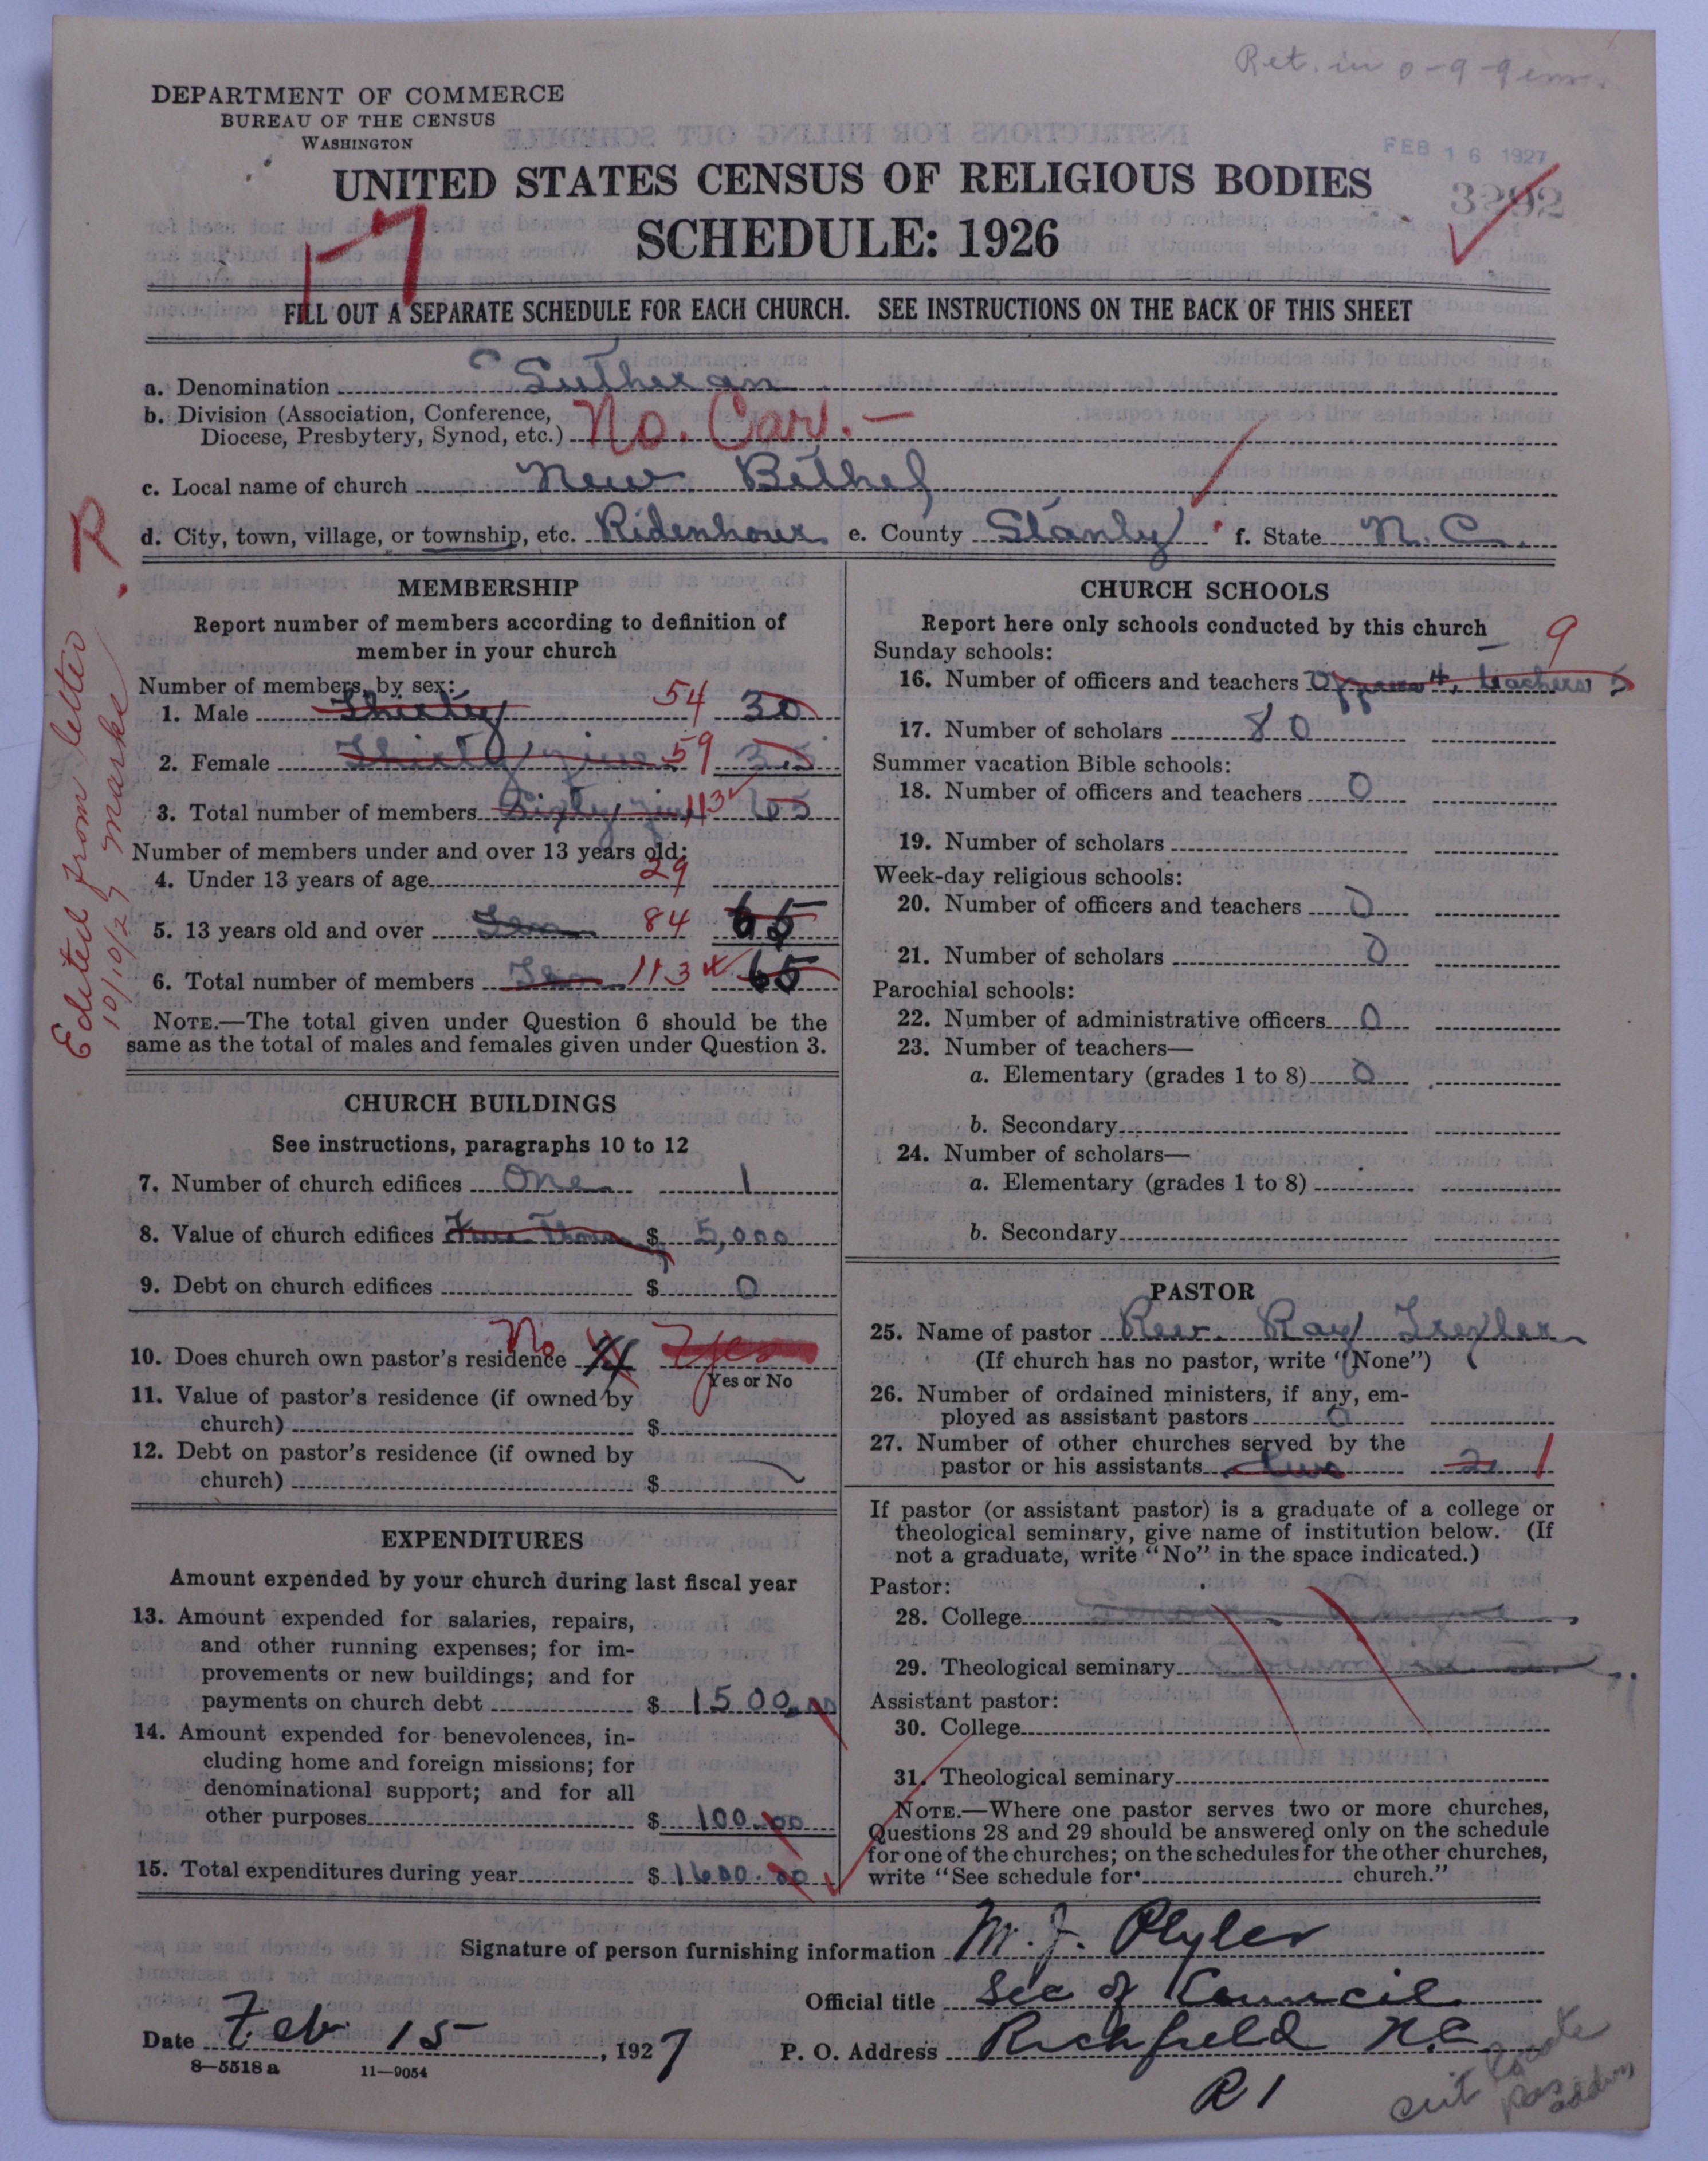 Ret. in
DEPARTMENT OF COMMERCE
BUREAU OF THE CENSUS
WASHINGTON
FEB 16 1927
3292
UNITED STATES CENSUS OF RELIGIOUS BODIES
SCHEDULE: 1926
17
FILL OUT A SEPARATE SCHEDULE FOR EACH CHURCH. SEE INSTRUCTIONS ON THE BACK OF THIS SHEET
a. Denomination Lutheran
b. Division (Association, Conference, Diocese, Presbytery, Synod, etc.) No. Car. —
c. Local name of church New Bethel
d. City, town, village, or township, etc. Ridenhour e. County Stanly f. State N. C.
Edited from letter R
10/10/27 marks
MEMBERSHIP
Report number of members according to definition of
member in your church
Number of members, by sex:
1. Male Thirty 54 30
2. Female Thirty five 59 35
3. Total number of members Sixty five 113 65
Number of members under and over 13 years old:
4. Under 13 years of age 29
5. 13 years old and over Ten 84 65
6. Total number of members Ten 113 65
NOTE.—The total given under Question 6 should be the
same as the total of males and females given under Question 3.
CHURCH BUILDINGS
See instructions, paragraphs 10 to 12
7. Number of church edifices One 1
8. Value of church edifices $ 5,000
9. Debt on church edifices $ 0
10. Does church own pastor's residence No Yes
Yes or No
11. Value of pastor's residence (if owned by
church) $
12. Debt on pastor's residence (if owned by
church) $
EXPENDITURES
Amount expended by your church during last fiscal year
13. Amount expended for salaries, repairs,
and other running expenses; for im-
provements or new buildings; and for
payments on church debt $ 1500.00
14. Amount expended for benevolences, in-
cluding home and foreign missions; for
denominational support; and for all
other purposes $ 100.00
15. Total expenditures during year $ 1600.00
CHURCH SCHOOLS
Report here only schools conducted by this church
Sunday schools:
9
16. Number of officers and teachers Officers 4, teachers 5
17. Number of scholars 80
Summer vacation Bible schools:
18. Number of officers and teachers 0
19. Number of scholars
Week-day religious schools:
20. Number of officers and teachers 0
21. Number of scholars 0
Parochial schools:
22. Number of administrative officers 0
23. Number of teachers—
a. Elementary (grades 1 to 8) 0
b. Secondary
24. Number of scholars—
a. Elementary (grades 1 to 8)
b. Secondary
PASTOR
25. Name of pastor Rev. Ray Trexler
(If church has no pastor, write "None")
26. Number of ordained ministers, if any, em-
ployed as assistant pastors 0
27. Number of other churches served by the
pastor or his assistants two 2 1
If pastor (or assistant pastor) is a graduate of a college or
theological seminary, give name of institution below. (If
not a graduate, write "No" in the space indicated.)
Pastor:
28. College
29. Theological seminary
Assistant pastor:
30. College
31. Theological seminary
NOTE.—Where one pastor serves two or more churches,
Questions 28 and 29 should be answered only on the schedule
for one of the churches; on the schedules for the other churches,
write "See schedule for church."
Signature of person furnishing information M. J. Plyler
Official title Sec of Council
Date Feb 15, 1927 P. O. Address Richfield N.C
R 1
8—5518 a 11—9054